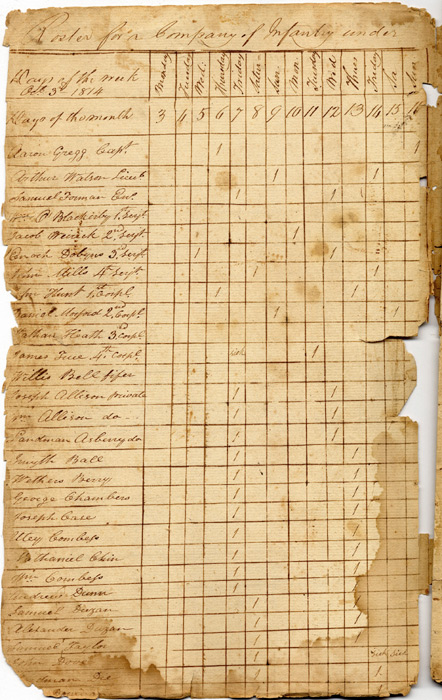 Roster for a Company of Infantry under
Days of the week Monday Tuesday Wed. Thursday Friday Satur Sun Mon. Tuesday Wed Thurs Friday Sa Sun
Oct. 3d 1814
Days of the month 3 4 5 6 7 8 9 10 11 12 13 14 15 16
Aaron Gregg Capt. 1 1
Arthur Watson Lieut. 1 1
Samuel Forman En. 1 1
Wm P Blackerby 1st Sergt
Jacob Weirick 2nd Sergt 1
Enoch Dobyns 3d Sergt 1 1
John Mills 4th Sergt 1 1
Wm Hunt 1st Corpl. 1 1
Daniel Morford 2nd Corpl. 1 1
Nathan Heath 3d Corpl.
James True 4th Corpl. sick 1
Willis Bell fifer
Joseph Allison private 1 1
Wm Allison do 1 1
Landman Asberry do 1 1
Smyth Ball 1 1
Withers Berry 1 1
George Chambers 1 1
Joseph Case 1 1
Uley Combess 1 1
Nathaniel Chin 1 1
Wm Combess 1
Andrew Dunn 1
Samuel 1
Alexander 1
Samuel Taylor 1
John 1 Sick Sick
1 1
1